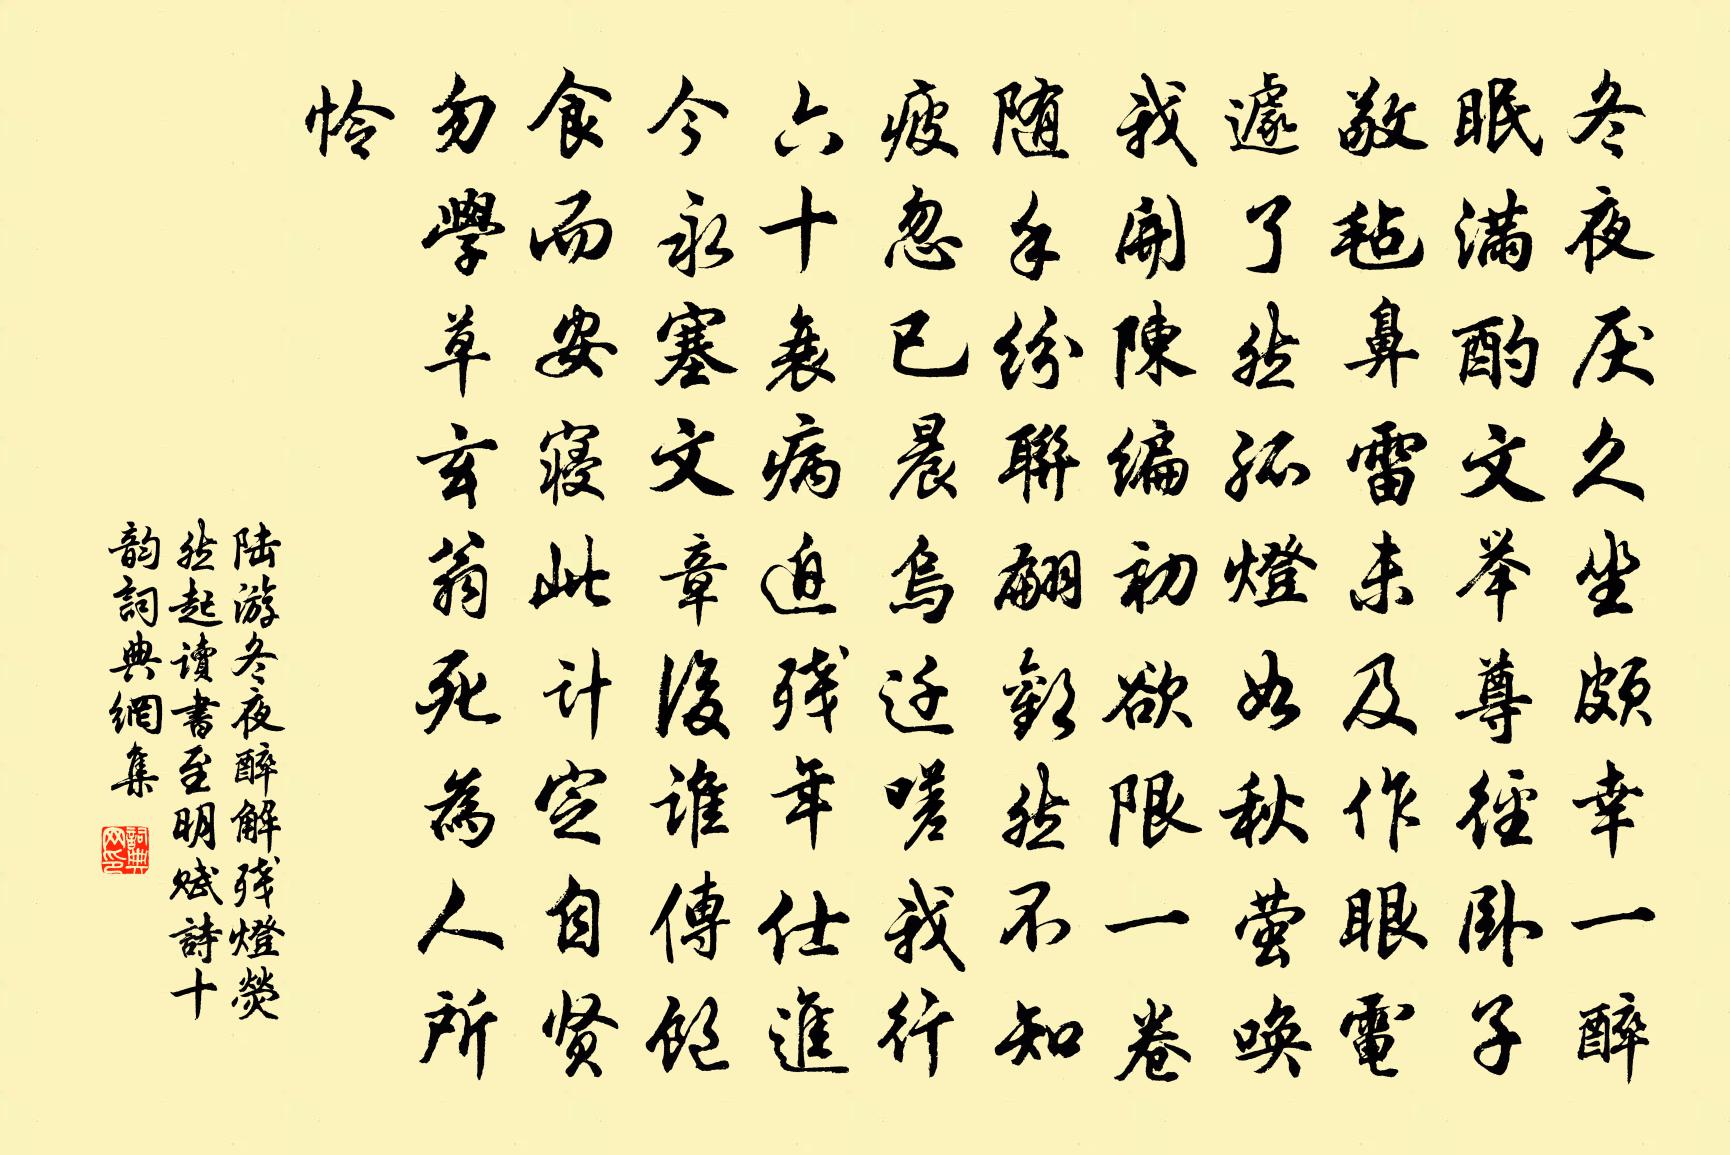 冬夜厌久坐頗幸一醉
眠满酌文举尊徑卧子
敬毡鼻雷未及作眼電
遽了然孤燈如秋萤唤
我開陳编初欲限一卷
随手纷聯翩劉然不知
疲忽已晨烏迁嗟我行
六十衰病迫残年仕進
今永塞文章後谁傳飽
食而安寝此计定自贤
勿學草玄翁死為人所
怜
陆游冬夜醉解残燈熒
然起讀書至明赋詩十
韵詞典網集
詞典网印